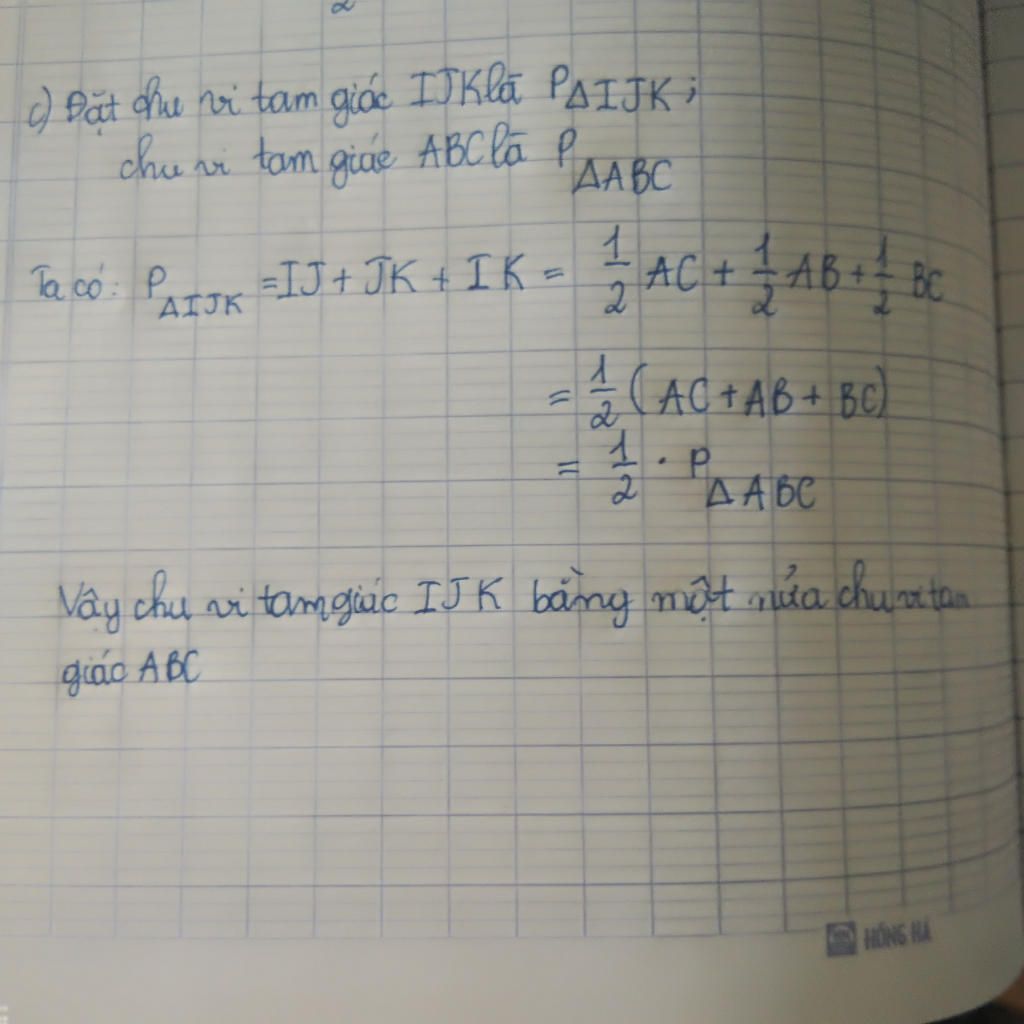 2
c) Đặt chu vi tam giác IJK là P ΔIJK ;
chu vi tam giác ABC là P ΔABC
Ta có: P ΔIJK = IJ + JK + IK = 1/2 AC + 1/2 AB + 1/2 BC
= 1/2 ( AC + AB + BC)
= 1/2 · P ΔABC
Vậy chu vi tam giác IJK bằng một nửa chu vi tam
giác ABC
HỒNG HÀ